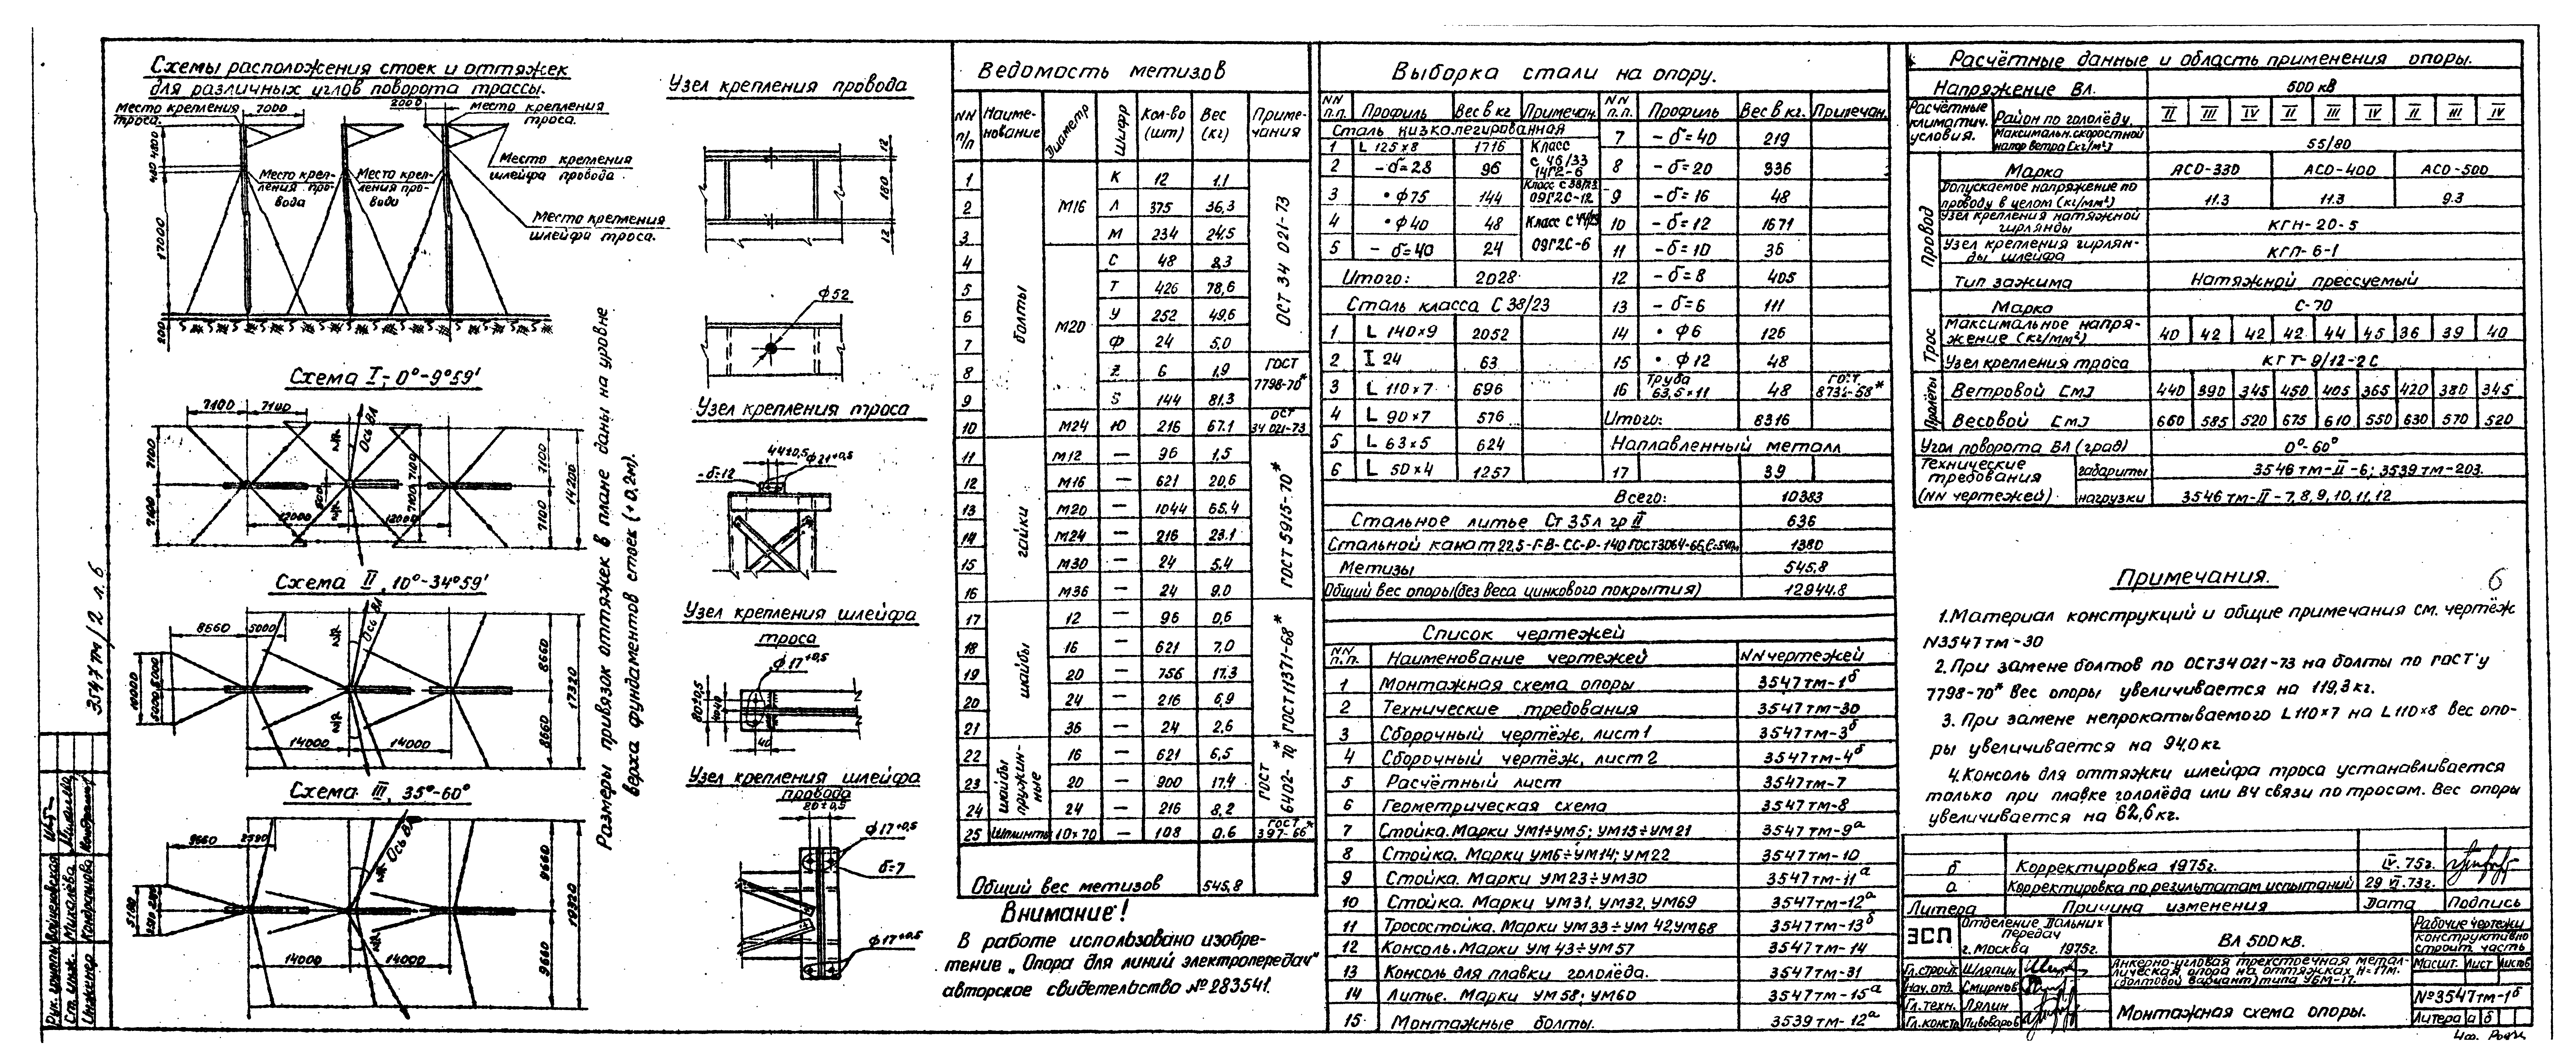 Схемы расположения стоек и оттяжек
для различных углов поворота трассы.
Место крепления троса.
7000
2000
Место крепления троса.
Место крепления шлейфа провода.
Место креп-
ления про-
вода
Место креп-
ления про-
вода
Место крепления
шлейфа троса.
17000
200
Схема I - 0°-9°59'
7100 7100
Ось ВЛ
7100 7100
12000 12000
7100 7100 14200
Схема II, 10°-34°59'
8660 5000
Ось ВЛ
10000 5000 5000
14000 14000
8660 8660 17320
Схема III, 35°-60°
9660 2590
Ось ВЛ
5180
14000 14000
9660 9660 19320
Размеры привязок оттяжек в плане даны на уровне
верха фундаментов стоек (+0,2м).
Узел крепления провода
12 180 12
ф52
Узел крепления троса
44±0,5 ф21+0,5
-б=12
Узел крепления шлейфа
троса
ф17+0,5
80±0,5
40
Узел крепления шлейфа
провода
80±0,5
ф17+0,5
б=7
ф17+0,5
Ведомость метизов
NN п/п Наиме-нование Диаметр Шифр Кол-во (шт) Вес (кг) Приме-чания
болты
1 М16 К 12 1.1 ОСТ 34 021-73
2 Л 375 36,3
3 М 234 24,5
4 М20 С 48 8,3
5 Т 426 78,6
6 У 252 49,6
7 Ф 24 5,0
8 Z 6 1,9 ГОСТ 7798-70*
9 S 144 81,3
10 М24 Ю 216 67.1 ОСТ 34 021-73
гайки
11 М12 — 96 1,5 ГОСТ 5915-70*
12 М16 — 621 20,6
13 М20 — 1044 65.4
14 М24 — 216 23.1
15 М30 — 24 5,4
16 М36 — 24 9.0
шайбы
17 12 — 96 0,6 ГОСТ 11371-68*
18 16 — 621 7,0
19 20 — 756 17.3
20 24 — 216 6,9
21 36 — 24 2,6
шайбы пружин-ные
22 16 — 621 6,5 ГОСТ 6402-70*
23 20 — 900 17,4
24 24 — 216 8,2
25 Шплинты 10×70 — 108 0.6 ГОСТ 397-66*
Общий вес метизов 545,8
Внимание!
В работе использовано изобре-
тение „Опора для линий электропередач"
авторское свидетельство №283541.
Выборка стали на опору.
NN п.п. Профиль Вес в кг Примечан. NN п.п. Профиль Вес в кг. Примечан.
Сталь низколегированная 7 - б=40 219
1 L 125×8 1716 Класс с 46/33 14Г2-6
2 - б=28 96 8 - б=20 936
3 • ф75 144 Класс с 38/23 09Г2С-12 9 - б=16 48
4 • ф40 48 Класс с 44/29 10 - б=12 1671
5 - б=40 24 09Г2С-6 11 - б=10 36
Итого: 2028 12 - б=8 405
Сталь класса С 38/23 13 - б=6 111
1 L 140×9 2052 14 • ф6 126
2 I 24 63 15 • ф12 48
3 L 110×7 696 16 Труба 63,5×11 48 ГОСТ 8732-58*
4 L 90×7 576 Итого: 8316
5 L 63×5 624 Наплавленный металл
6 L 50×4 1257 17 39
Всего: 10383
Стальное литье Ст 35л гр II 636
Стальной канат 22,5-Г-В-СС-Р-140 ГОСТ3064-66 1380
Метизы 545.8
Общий вес опоры (без веса цинкового покрытия) 12944.8
Список чертежей
NN п.п. Наименование чертежей NN чертежей
1 Монтажная схема опоры 3547тм-1б
2 Технические требования 3547тм-30
3 Сборочный чертёж, лист 1 3547тм-3б
4 Сборочный чертёж, лист 2 3547тм-4б
5 Расчётный лист 3547тм-7
6 Геометрическая схема 3547тм-8
7 Стойка. Марки УМ1÷УМ5; УМ15÷УМ21 3547тм-9а
8 Стойка. Марки УМ6÷УМ14; УМ22 3547тм-10
9 Стойка. Марки УМ23÷УМ30 3547тм-11а
10 Стойка. Марки УМ31, УМ32, УМ69 3547тм-12а
11 Тросостойка. Марки УМ33÷УМ42, УМ68 3547тм-13б
12 Консоль. Марки УМ43÷УМ57 3547тм-14
13 Консоль для плавки гололёда. 3547тм-31
14 Литье. Марки УМ58; УМ60 3547тм-15а
15 Монтажные болты. 3539тм-12а
Расчётные данные и область применения опоры.
Напряжение Вл. 500 кв
Расчётные климатич. условия. Район по гололёду II III IV II III IV II III IV
Максимальн. скоростной напор ветра (кг/м²) 55/80
Провод
Марка АСО-330 АСО-400 АСО-500
Допускаемое напряжение по проводу в целом (кг/мм²) 11.3 11.3 9.3
Узел крепления натяжной гирлянды КГН-20-5
Узел крепления гирлян-ды шлейфа КГП-6-1
Тип зажима Натяжной прессуемый
Трос
Марка С-70
Максимальное напря-жение (кг/мм²) 40 42 42 42 44 45 36 39 40
Узел крепления троса КГТ-9/12-2С
Пролёты
Ветровой [м] 440 390 345 450 405 365 420 380 345
Весовой [м] 660 585 520 675 610 550 630 570 520
Угол поворота ВЛ (град) 0°-60°
Технические требования (NN чертежей) габариты 3546тм-II-6; 3539тм-203.
нагрузки 3546тм-II-7,8,9,10,11,12
Примечания.
6
1. Материал конструкций и общие примечания см. чертёж
N3547тм-30
2. При замене болтов по ОСТ34021-73 на болты по ГОСТ'у
7798-70* вес опоры увеличивается на 119,3кг.
3. При замене непрокатываемого L110×7 на L110×8 вес опо-
ры увеличивается на 94,0кг
4. Консоль для оттяжки шлейфа троса устанавливается
только при плавке гололёда или ВЧ связи по тросам. Вес опоры
увеличивается на 62,6кг.
б Корректировка 1975г. IV. 75г.
а Корректировка по результатам испытаний 29 VI.73г.
Литера Причина изменения Дата Подпись
ЭСП Отделение Дальних передач
г. Москва 1975г.
ВЛ 500кв.
Рабочие чертежи
Конструктивно строит. часть
Гл. строит. Шляпин
Нач. отд. Смирнов
Гл. техн. Ляпин
Гл. констр. Пивоваров
Анкерно-угловая трехстоечная метал-
лическая опора на оттяжках Н=17м.
(болтовой вариант) типа УБМ-17.
Масшт. Лист Листов
Монтажная схема опоры.
№3547тм-1б
Литера а б
3547тм/2 л.6
Рук. группы Войцеховская
Ст. инж. Михалёва
Инженер Кондрашова